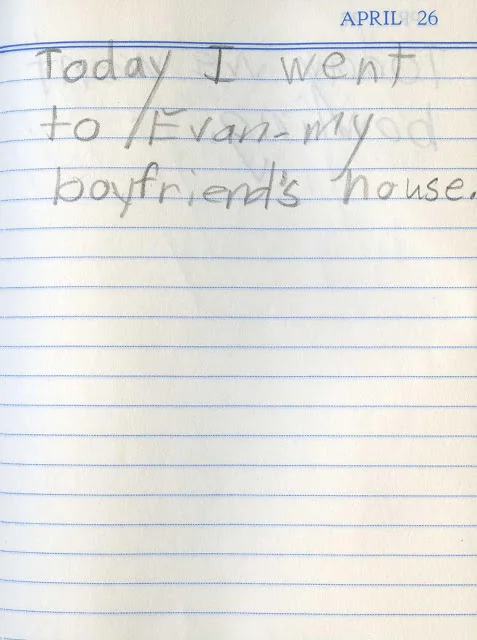 APRIL 26
Today I went
to Evan-my
boyfriend's house.